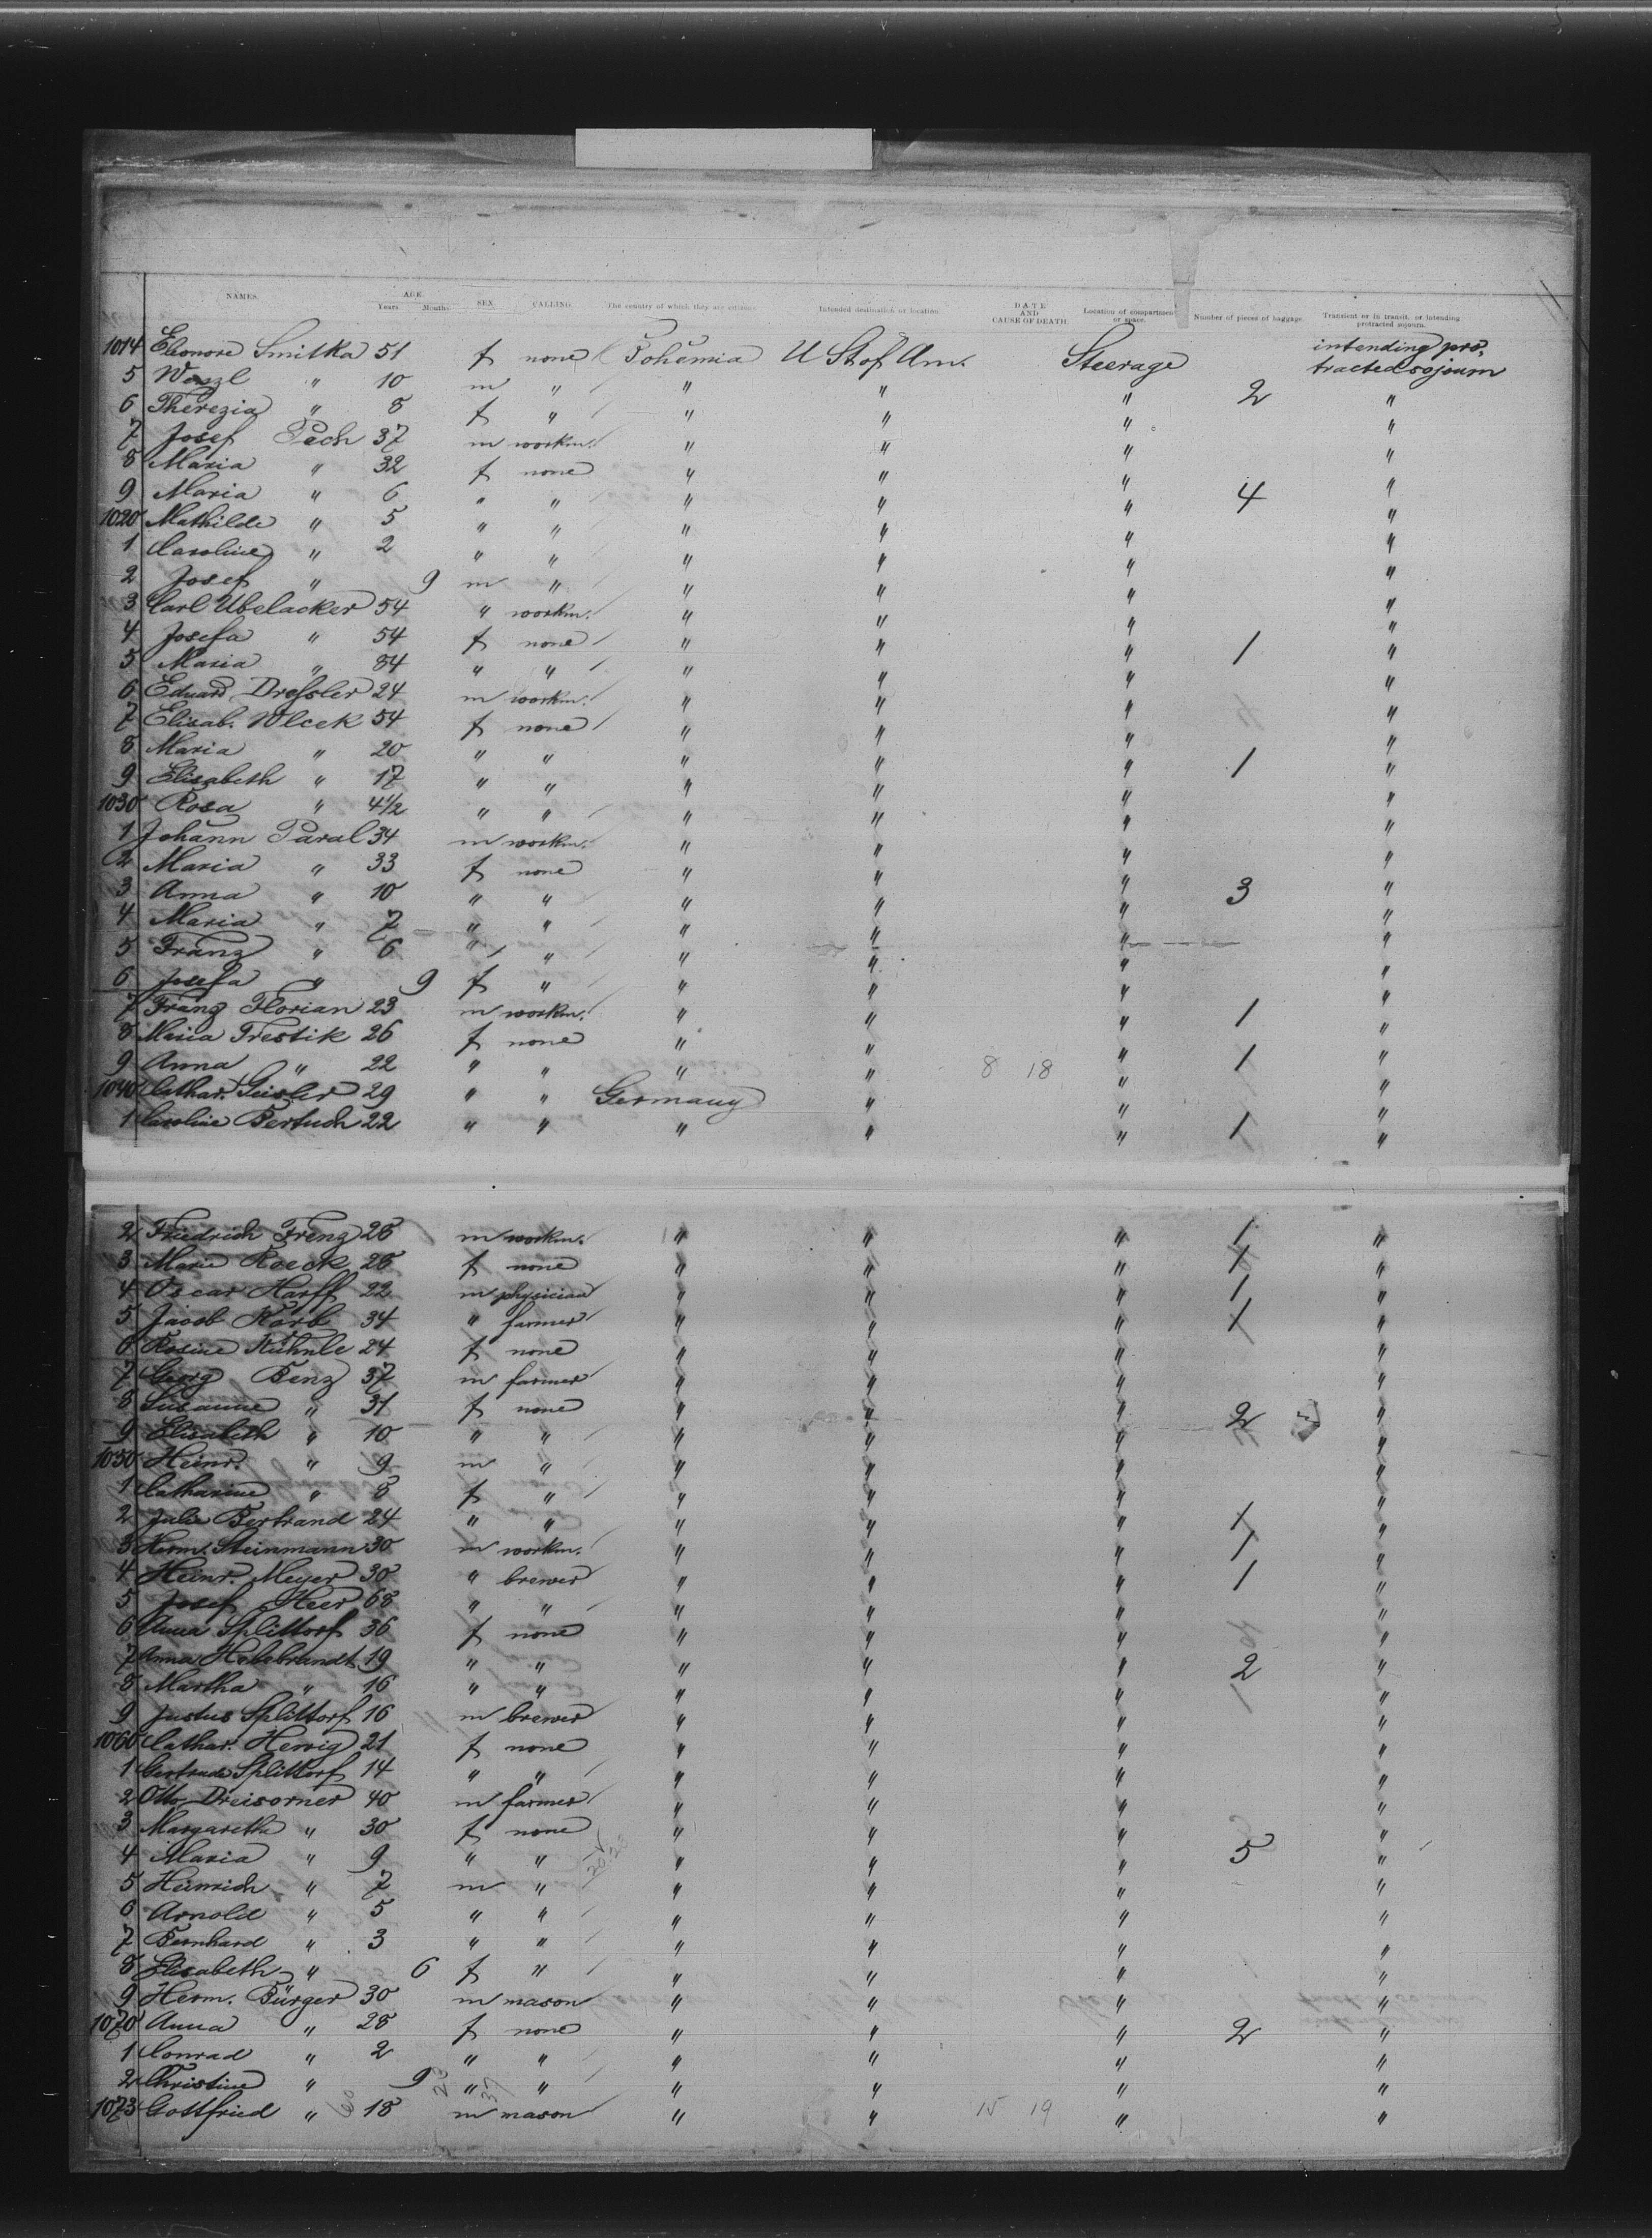 NAMES. AGE. Years Months SEX. CALLING. The country of which they are citizens. Intended destination or location. DATE AND CAUSE OF DEATH. Location of compartment or space. Number of pieces of baggage. Transient or in transit, or intending protracted sojourn.
1014 Eleonore Smitka 51 f none Bohemia U St of Am. Steerage intending pro-
tracted sojourn
5 Wenzl " 10 m " " " " 2 "
6 Therezia " 8 f " " " " "
7 Josef Pech 37 m workm. " " " "
8 Maria " 32 f none " " " "
9 Maria " 6 " " " " " 4 "
1020 Mathilde " 5 " " " " " "
1 Caroline " 2 " " " " " "
2 Josef " 9 m " " " " "
3 Carl Ubelacker 54 " workm. " " " "
4 Josefa " 54 f none " " " 1 "
5 Maria " 84 " " " " " "
6 Eduard Dreſsler 24 m workm. " " " "
7 Elisab. Wlcek 54 f none " " " "
8 Maria " 20 " " " " " 1 "
9 Elisabeth " 17 " " " " " "
1030 Rosa " 4½ " " " " " "
1 Johann Paral 34 m workm. " " " "
2 Maria " 33 f none " " " "
3 Anna " 10 " " " " " 3 "
4 Maria " 7 " " " " " "
5 Franz " 6 " " " " " "
6 Josefa " 9 f " " " " "
7 Franz Florian 23 m workm. " " " 1 "
8 Maria Trestik 26 f none " " " "
9 Anna " 22 " " " " 8 18 " 1 "
1040 Cathar. Geisler 29 " " Germany " " "
1 Caroline Bertuch 22 " " " " " 1 "
2 Friedrich Frenz 28 m workm. " " " 1 "
3 Marie Roeck 28 f none " " " 1 "
4 Oscar Harff 22 m physician " " " 1 "
5 Jacob Korb 34 " farmer " " " 1 "
6 Rosine Kühnle 24 f none " " " "
7 Georg Benz 37 m farmer " " " "
8 Susanne " 31 f none " " " 2 "
9 Elisabeth " 10 " " " " " "
1050 Heinr. " 9 m " " " " "
1 Catharine " 8 f " " " " "
2 Julie Bertrand 24 " " " " " 1 "
3 Herm. Steinmann 30 m workm. " " " 1 "
4 Heinr. Meyer 30 " brewer " " " 1 "
5 Josef Heer 68 " " " " " "
6 Anna Splittorf 36 f none " " " "
7 Anna Helebrandt 19 " " " " " 2 "
8 Martha " 16 " " " " " "
9 Justus Splittorf 16 m brewer " " " "
1060 Cathar. Herwig 21 f none " " " "
1 Gertrude Splittorf 14 " " " " " "
2 Otto Dreisorner 40 m farmer " " " "
3 Margaretha " 30 f none " " " "
4 Maria " 9 " " " " " 5 "
5 Heinrich " 7 m " " " " "
6 Arnold " 5 " " " " " "
7 Bernhard " 3 " " " " " "
8 Elisabeth " 6 f " " " " "
9 Herm. Bürger 30 m mason " " " "
1070 Anna " 28 f none " " " 2 "
1 Conrad " 2 " " " " " "
2 Christine " 9 " " " " " "
1073 Gottfried " 18 m mason " " 15 19 " "